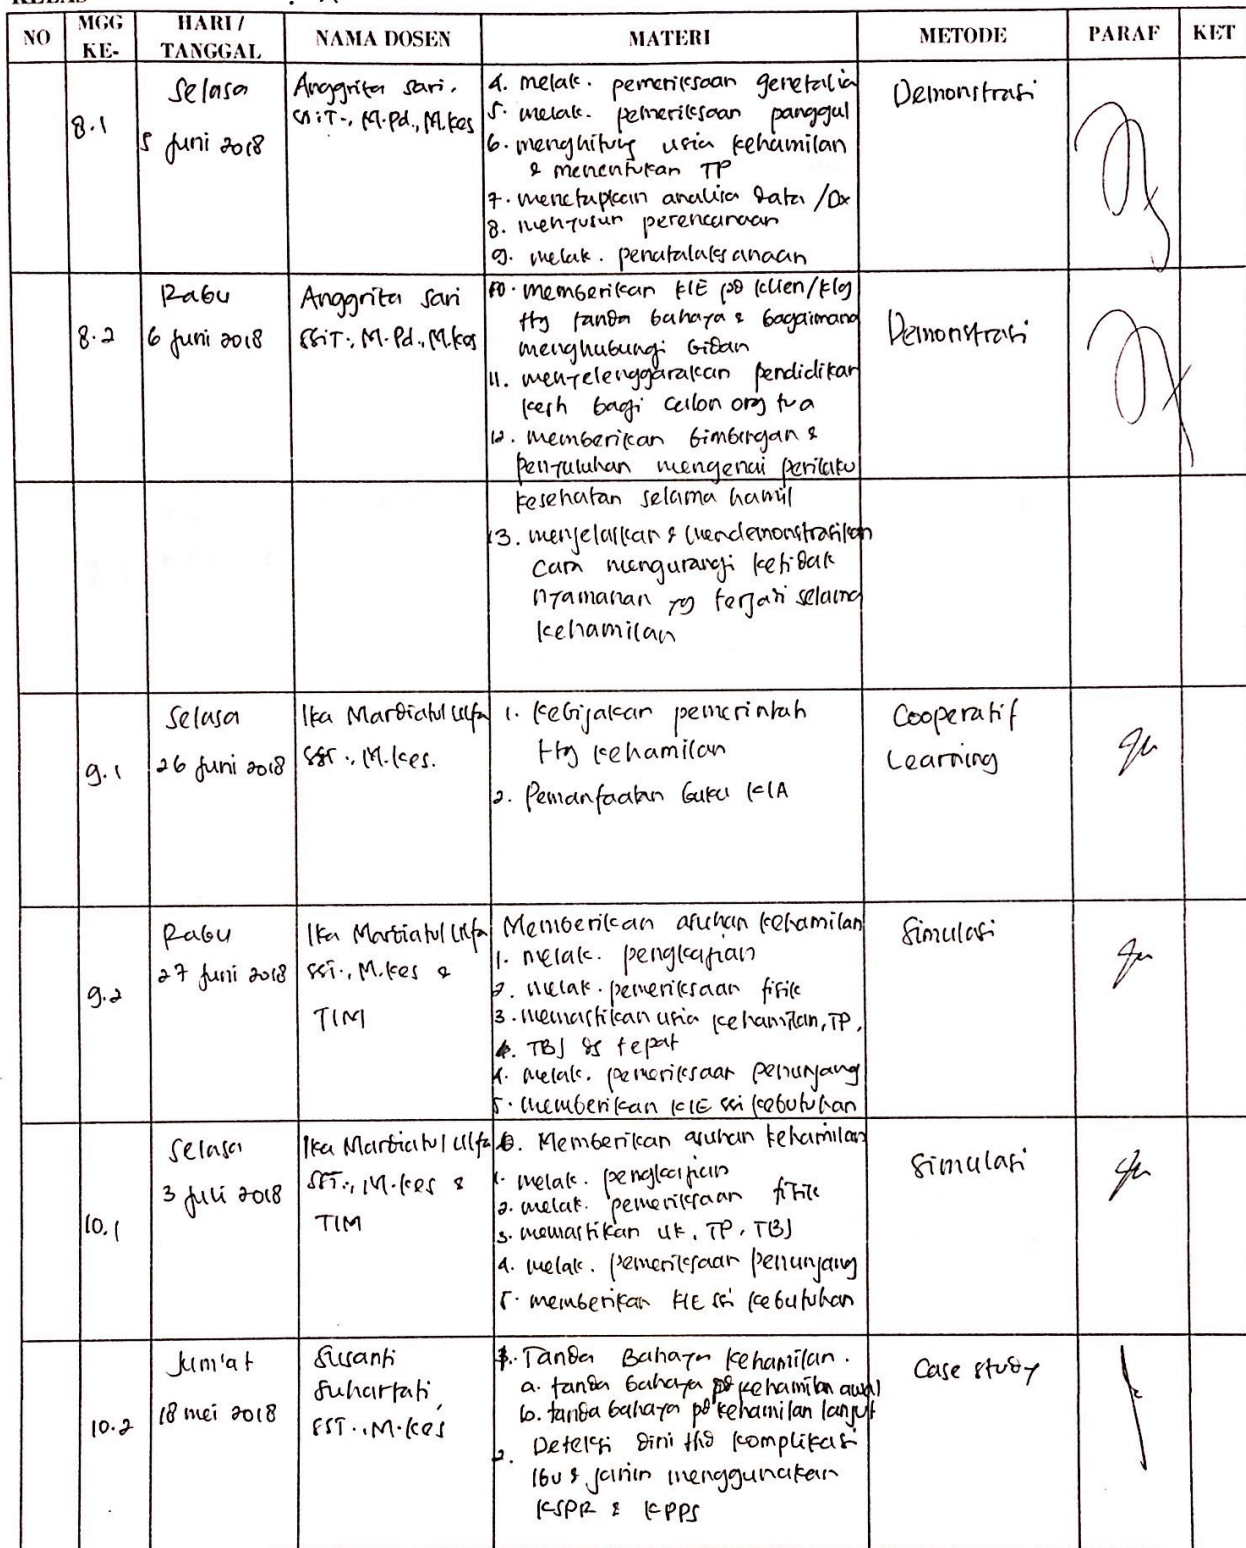 KELAS : A
NO MGG KE- HARI / TANGGAL NAMA DOSEN MATERI METODE PARAF KET
8.1
Selasa
5 Juni 2018
Anggrita Sari.
SSiT., M.Pd., M.Kes
4. melak. pemeriksaan genetalia
5. melak. pemeriksaan panggul
6. menghitung usia kehamilan
& menentukan TP
7. menetapkan analisa data / Dx
8. menyusun perencanaan
9. melak. penatalaksanaan
Demonstrasi
8.2
Rabu
6 Juni 2018
Anggrita Sari
SSiT., M.Pd., M.Kes
10. memberikan KIE pd klien/klg
ttg tanda bahaya & bagaimana
menghubungi bidan
11. menyelenggarakan pendidikan
kesh bagi calon org tua
12. memberikan bimbingan &
penyuluhan mengenai perilaku
kesehatan selama hamil
13. menjelaskan & mendemonstrasikan
cara mengurangi ketidak
nyamanan yg terjadi selama
kehamilan
Demonstrasi
9.1
Selasa
26 Juni 2018
Ika Mardiatul Ulfa
SST., M.Kes.
1. Kebijakan pemerintah
ttg kehamilan
2. Pemanfaatan buku KIA
Cooperatif
Learning
9.2
Rabu
27 Juni 2018
Ika Mardiatul Ulfa
SST., M.Kes &
TIM
Memberikan asuhan kehamilan
1. melak. pengkajian
2. melak. pemeriksaan fisik
3. memastikan usia kehamilan, TP,
TBJ dg tepat
4. melak. pemeriksaan penunjang
5. memberikan KIE ssi kebutuhan
Simulasi
10.1
Selasa
3 Juli 2018
Ika Mardiatul Ulfa
SST., M.Kes &
TIM
Memberikan asuhan kehamilan
1. melak. pengkajian
2. melak. pemeriksaan fisik
3. memastikan UK, TP, TBJ
4. melak. pemeriksaan penunjang
5. memberikan KIE ssi kebutuhan
Simulasi
10.2
Jum'at
18 mei 2018
Susanti
Suhartati
SST., M.Kes
1. Tanda Bahaya Kehamilan.
a. tanda bahaya pd kehamilan awal
b. tanda bahaya pd kehamilan lanjut
2. Deteksi dini thd komplikasi
ibu & janin menggunakan
KSPR & KPPS
Case study